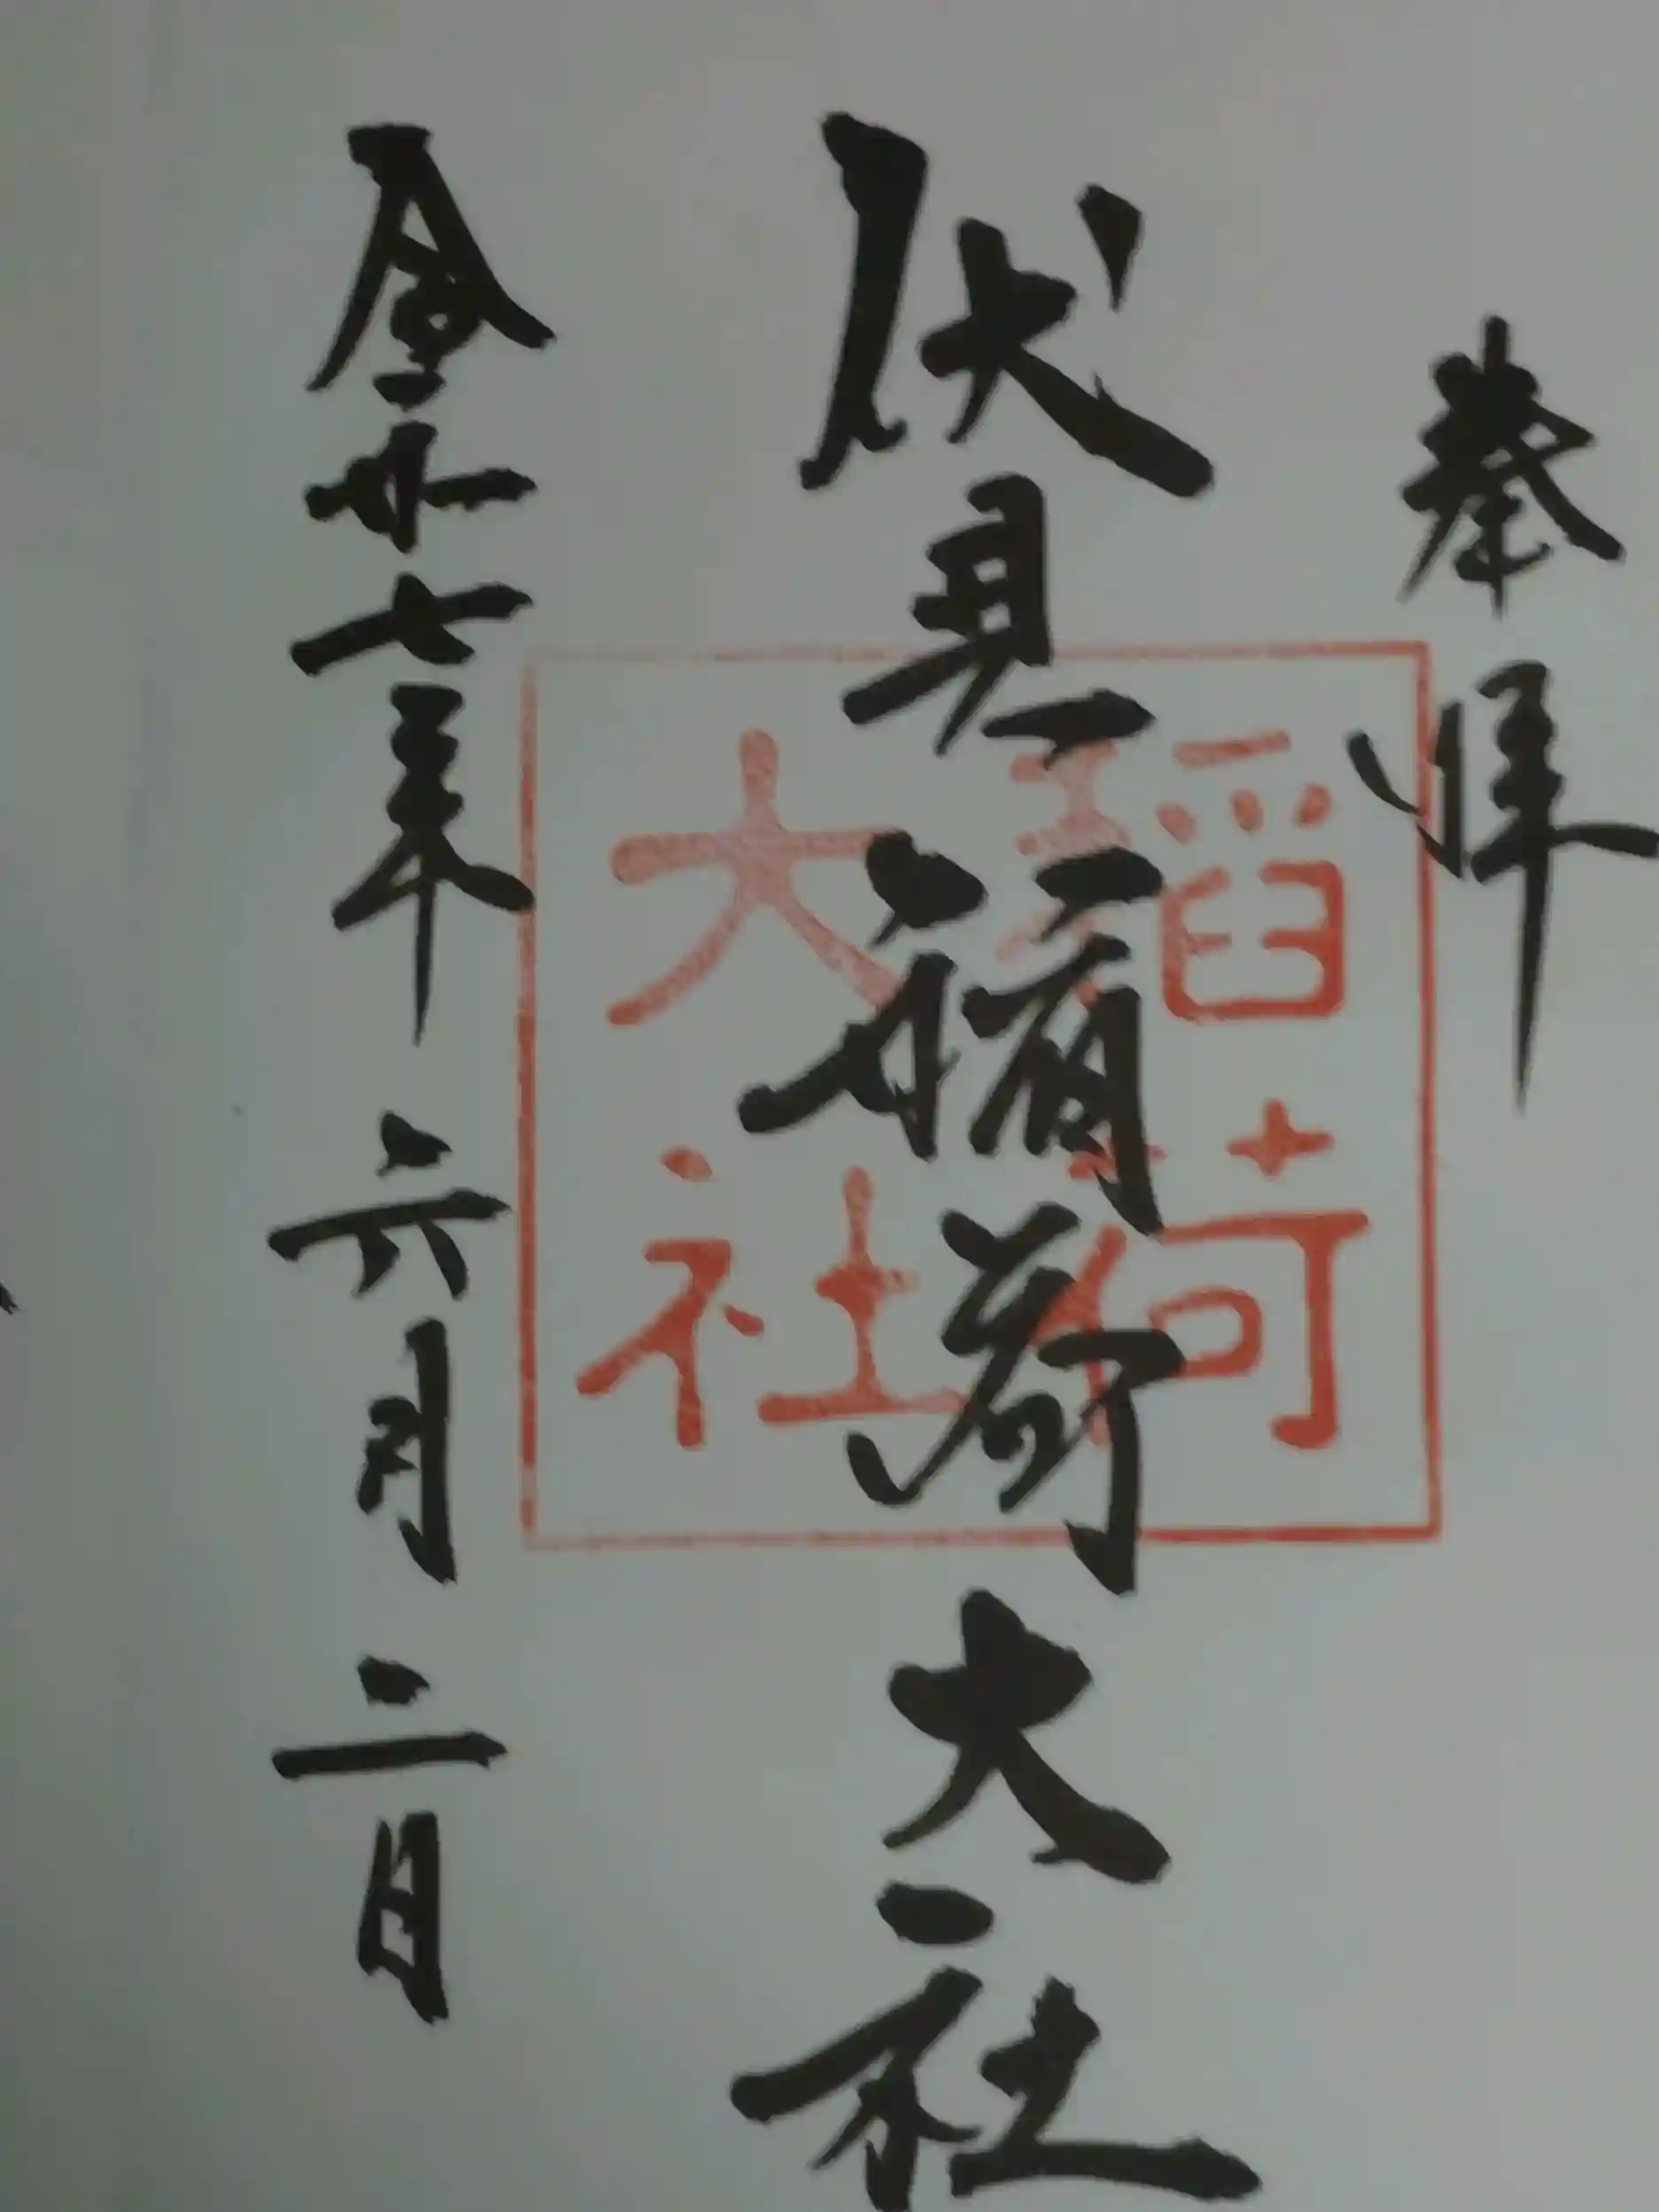 奉拝
伏見稲荷大社
令和七年六月二日
稲荷
大社